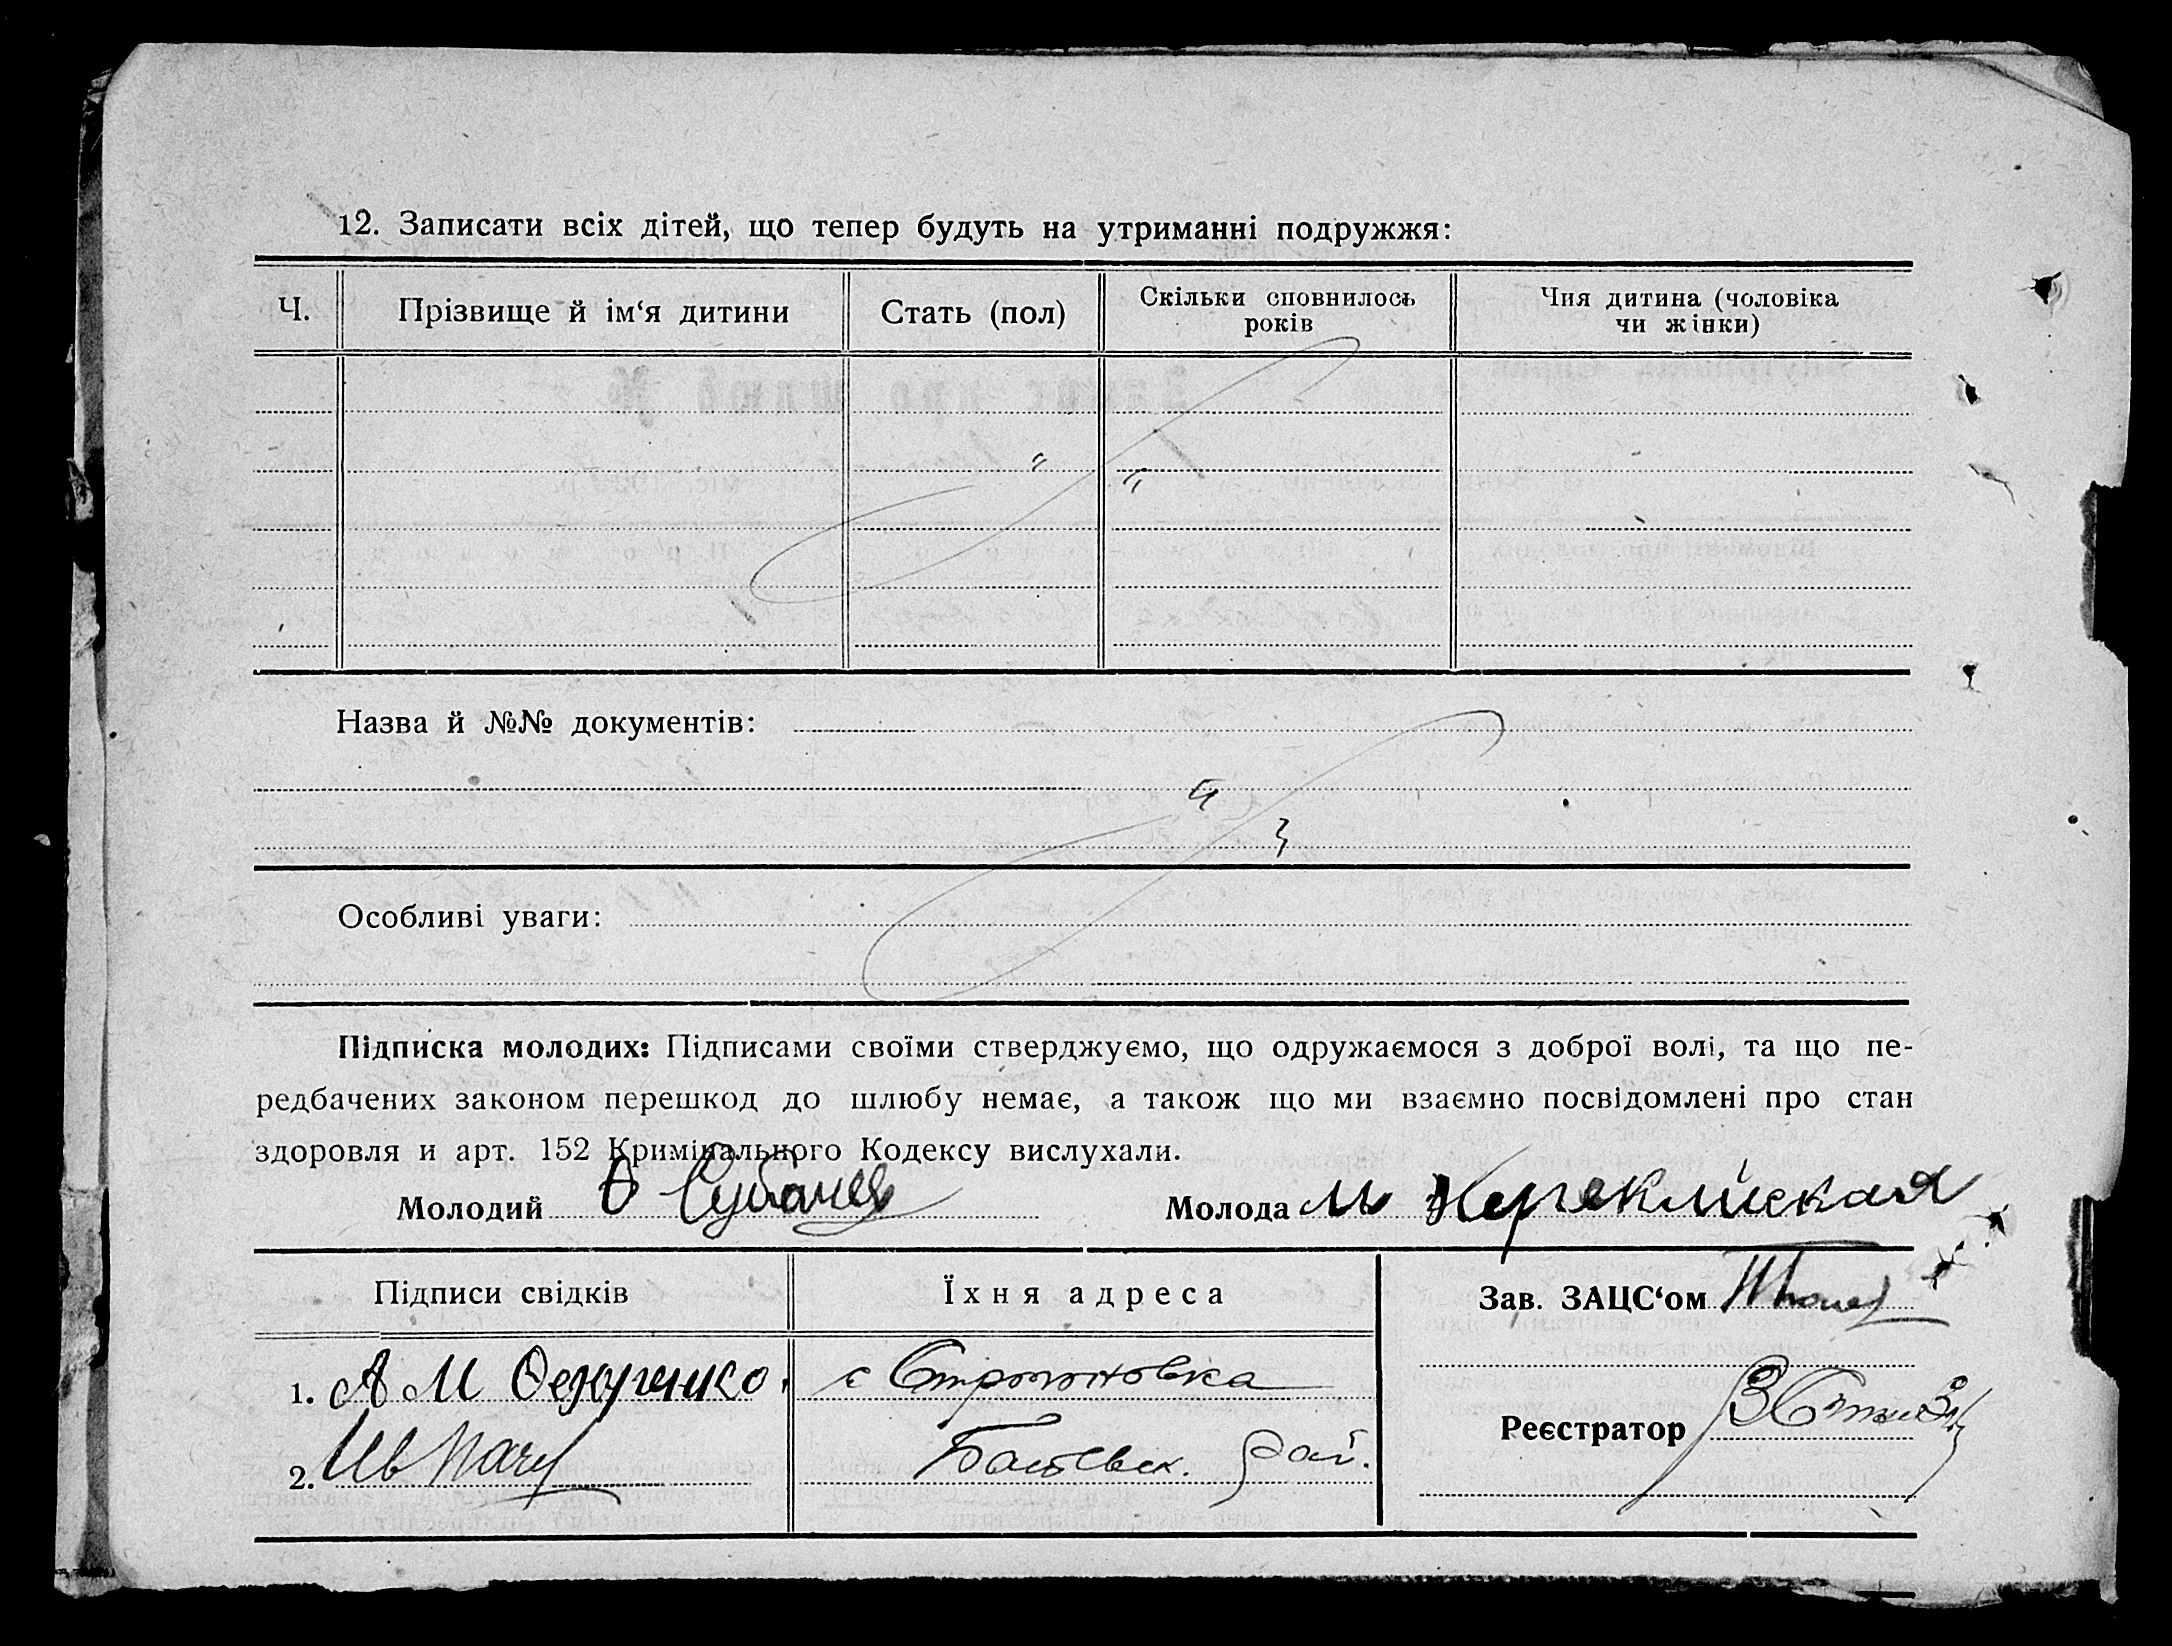 12. Записати всіх дітей, що тепер будуть на утриманні подружжя:
Ч. Прізвище й ім‘я дитини Стать (пол) Скільки сповнилось років Чия дитина (чоловіка чи жінки)
Назва й №№ документів:
Особливі уваги:
Підписка молодих: Підписами своїми стверджуємо, що одружаємося з доброї волі, та що пе-
редбачених законом перешкод до шлюбу немає, а також що ми взаємно посвідомлені про стан
здоровля и арт. 152 Кримінального Кодексу вислухали.
Молодий Молода М
Підписи свідків Їхня адреса Зав. ЗАЦС‘ом
1. А М с
Реєстратор
2. рай.